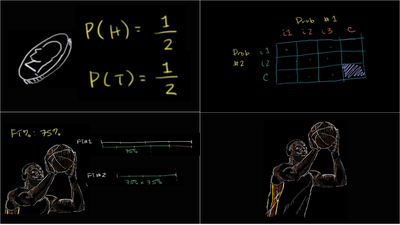 P(H) = 1/2
P(T) = 1/2
Prob #1
i1 i2 i3 C
Prob i1
#2 i2
C
FT%: 75%
FT#1
75%
FT#2
75% × 75%